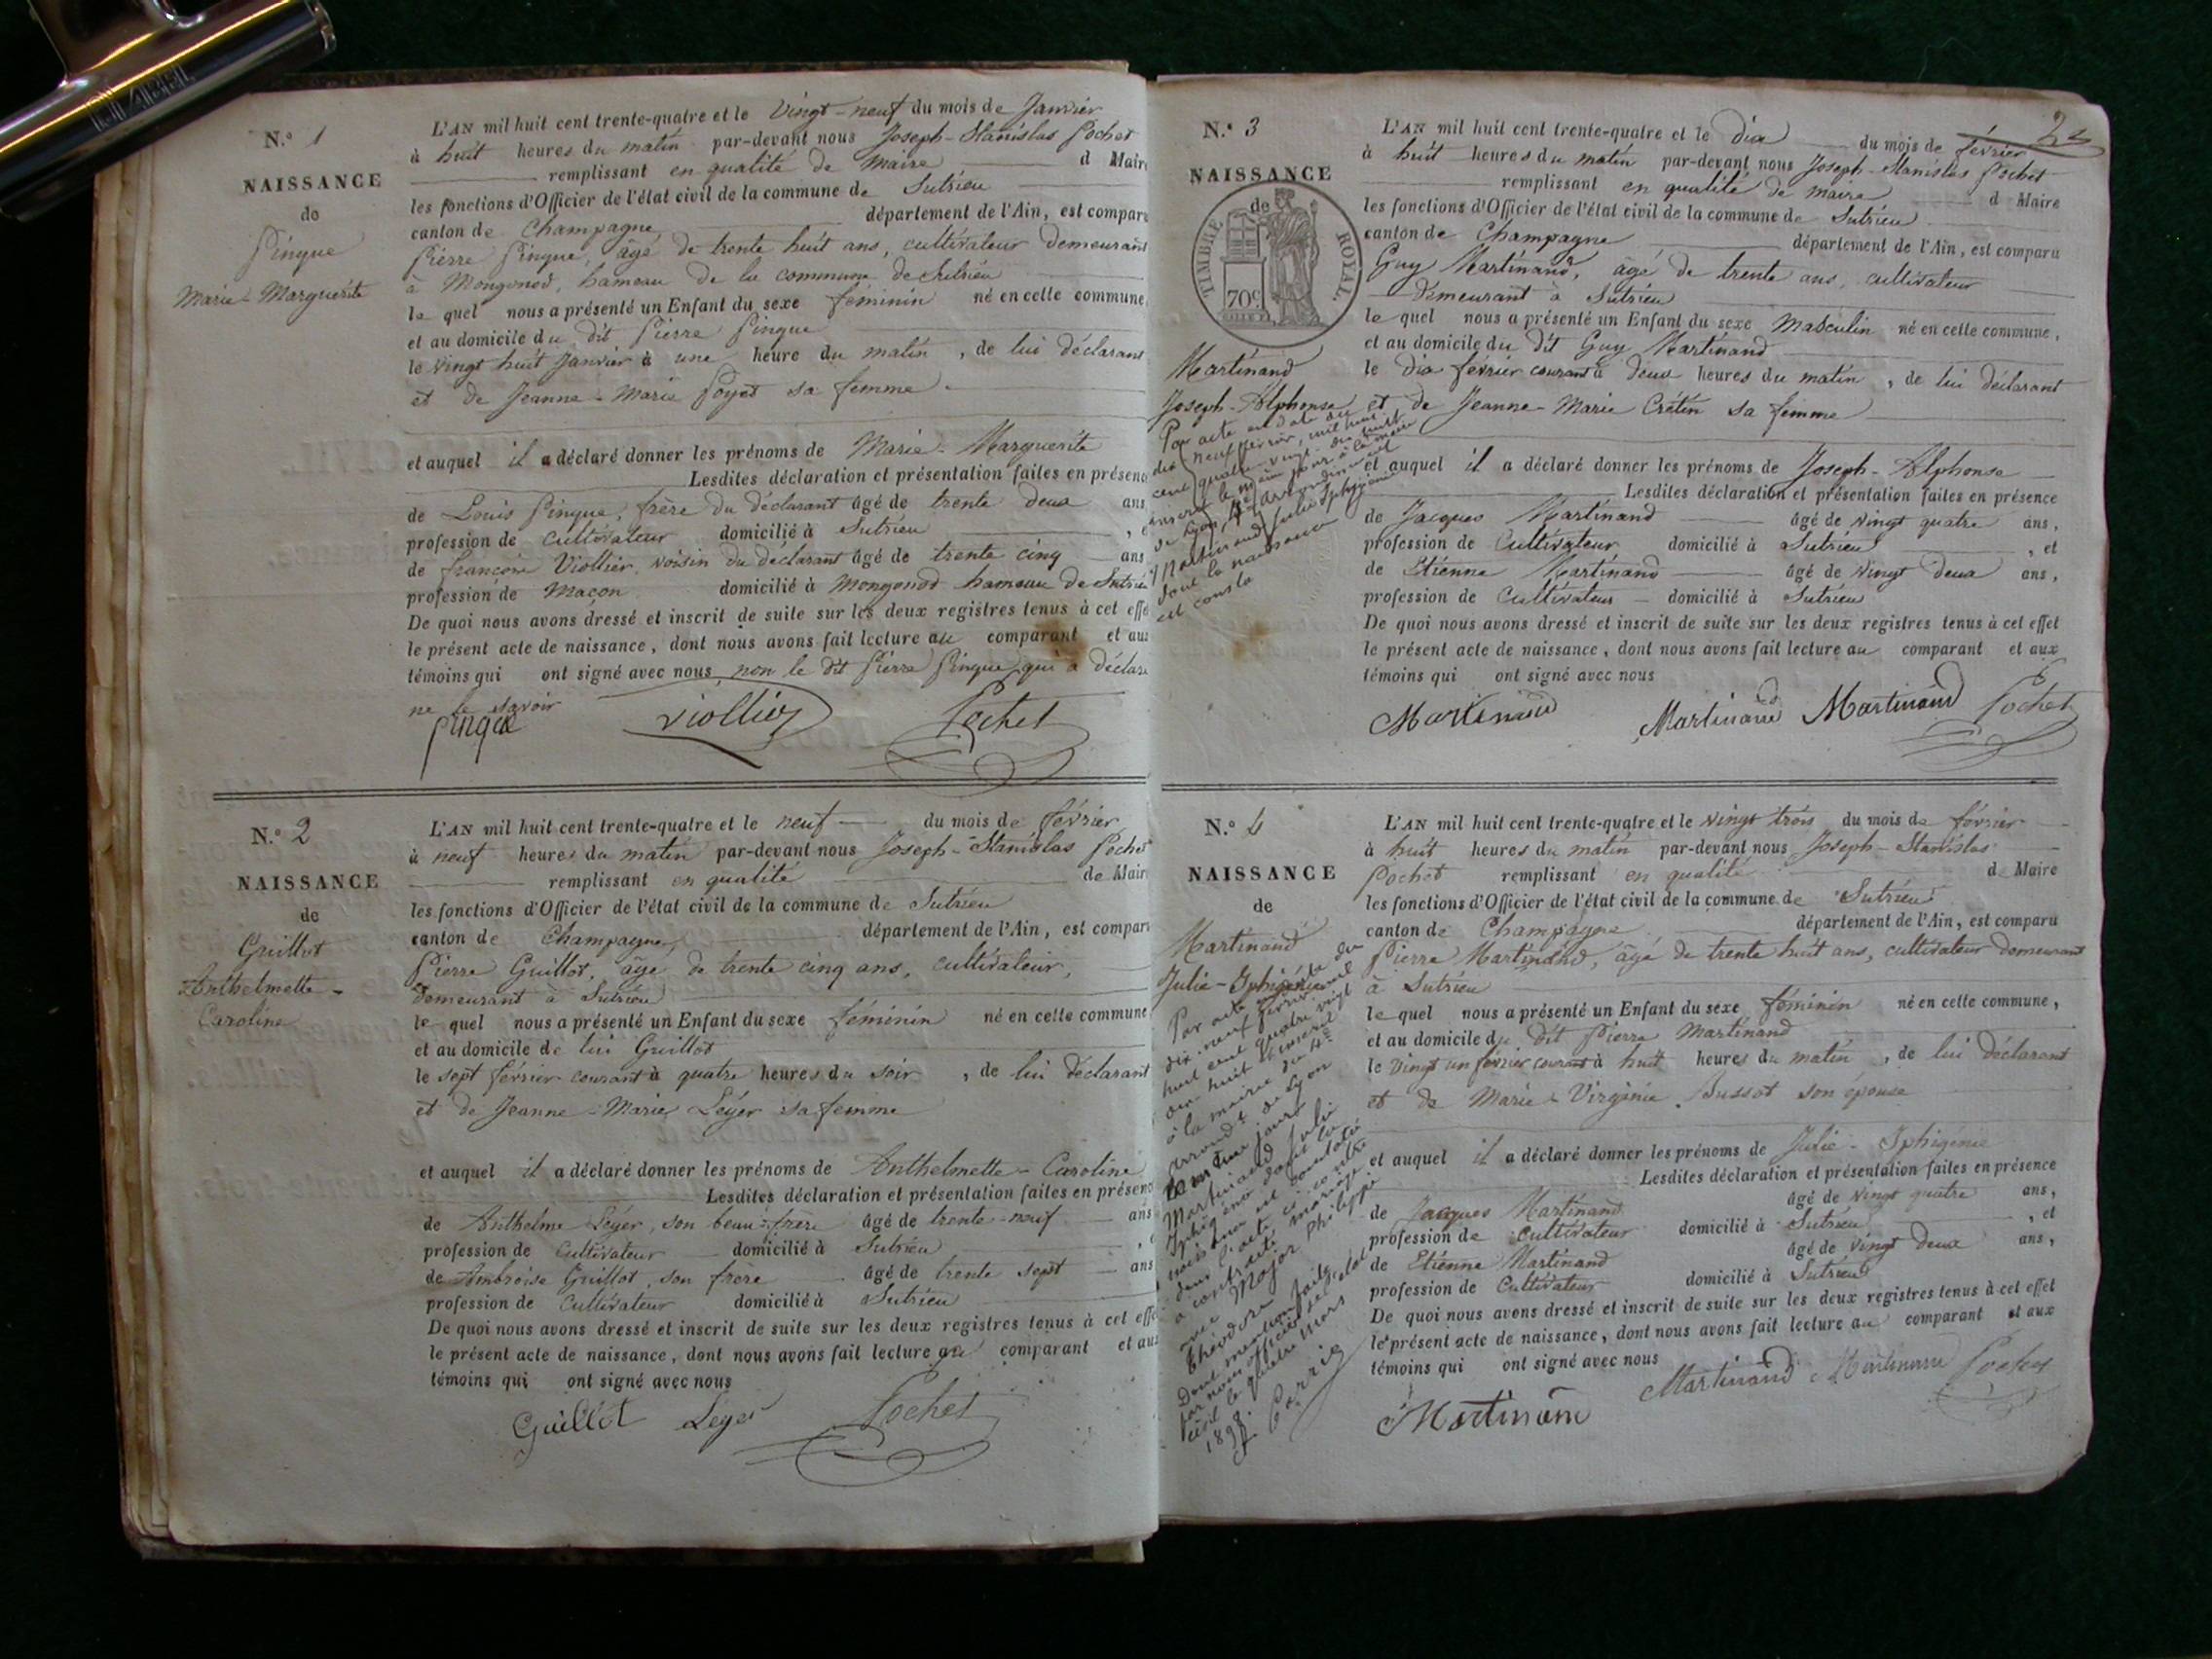 N.º 1
NAISSANCE
de
Pingue
Marie-Marguerite
L'AN mil huit cent trente-quatre et le vingt-neuf du mois de Janvier
à huit heures du matin par-devant nous Joseph-Stanislas Pochet
remplissant en qualité de maire d Maire
les fonctions d'Officier de l'état civil de la commune de Sutrieu
canton de Champagne département de l'Ain, est comparu
Pierre Pingue, âgé de trente huit ans, cultivateur demeurant
à Mongonod, hameau de la commune de Sutrieu
le quel nous a présenté un Enfant du sexe féminin né en cette commune,
et au domicile du dit Pierre Pingue
le vingt huit Janvier à une heure du matin, de lui déclarant
et de Jeanne-Marie Poyet sa femme
et auquel il a déclaré donner les prénoms de Marie-Marguerite
Lesdites déclaration et présentation faites en présence
de Louis Pingue, frère du déclarant âgé de trente deux ans
profession de cultivateur domicilié à Sutrieu
de françois Viollier, voisin du déclarant âgé de trente cinq ans
profession de Maçon domicilié à Mongonod hameau de Sutrieu
De quoi nous avons dressé et inscrit de suite sur les deux registres tenus à cet effe
le présent acte de naissance, dont nous avons fait lecture au comparant et aux
témoins qui ont signé avec nous, non le dit Pierre Pingue qui a déclaré
ne le savoir
Pingue Viollier Pochet
N.º 2
NAISSANCE
de
Guillot
Anthelmette-
Caroline
L'AN mil huit cent trente-quatre et le neuf du mois de février
à neuf heures du matin par-devant nous Joseph-Stanislas Pochet
remplissant en qualité de Maire
les fonctions d'Officier de l'état civil de la commune de Sutrieu
canton de Champagne, département de l'Ain, est comparu
Pierre Guillot, âgé de trente cinq ans, cultivateur,
demeurant à Sutrieu
le quel nous a présenté un Enfant du sexe féminin né en cette commune
et au domicile de lui Guillot
le sept février courant à quatre heures du soir, de lui déclarant
et de Jeanne-Marie Leyer sa femme
et auquel il a déclaré donner les prénoms de Anthelmette-Caroline
Lesdites déclaration et présentation faites en présence
de Anthelme Leyer, son beau-frère âgé de trente-neuf ans
profession de Cultivateur domicilié à Sutrieu
de Ambroise Guillot, son frère âgé de trente sept ans
profession de Cultivateur domicilié à Sutrieu
De quoi nous avons dressé et inscrit de suite sur les deux registres tenus à cet effe
le présent acte de naissance, dont nous avons fait lecture au comparant et aux
témoins qui ont signé avec nous
Guillot Leyer Pochet
2
N.º 3
NAISSANCE
de
TIMBRE ROYAL
70c
Martinand
Joseph-Alphonse
Par acte en date du
dix neuf février, mil huit
cent quatre-vingt-dix huit
inscrit le même jour à la mairie
de Lyon, 4e arrondissement
Martinand Julie Iphigénie
dont la naissance
est consta
L'AN mil huit cent trente-quatre et le dix du mois de février
à huit heures du matin par-devant nous Joseph-Stanislas Pochet
remplissant en qualité de maire d Maire
les fonctions d'Officier de l'état civil de la commune de Sutrieu
canton de Champagne département de l'Ain, est comparu
Guy Martinand, âgé de trente ans, cultivateur
demeurant à Sutrieu
le quel nous a présenté un Enfant du sexe Masculin né en cette commune,
et au domicile du dit Guy Martinand
le dix février courant à deux heures du matin, de lui déclarant
et de Jeanne-Marie Crétin sa femme
et auquel il a déclaré donner les prénoms de Joseph-Alphonse
Lesdites déclaration et présentation faites en présence
de Jacques Martinand âgé de vingt quatre ans,
profession de Cultivateur domicilié à Sutrieu, et
de Etienne Martinand âgé de vingt deux ans,
profession de Cultivateur domicilié à Sutrieu
De quoi nous avons dressé et inscrit de suite sur les deux registres tenus à cet effet
le présent acte de naissance, dont nous avons fait lecture au comparant et aux
témoins qui ont signé avec nous
Martinand Martinand Martinand Pochet
N.º 4
NAISSANCE
de
Martinand
Julie-Iphigénie
Par acte en date du
dix-neuf février mil
huit cent quatre vingt
dix huit inscrit
à la mairie du 4e
arrondt de Lyon
le même jour
Martinand Julie
Iphigénie dont la
naissance est constatée
dans l'acte ci-contre
a contracté mariage
avec Major Philippe
Théodore
Dont mention faite
par nous officier de l'état
civil le quatre mars
1898.
L'AN mil huit cent trente-quatre et le vingt trois du mois de février
à huit heures du matin par-devant nous Joseph-Stanislas
Pochet remplissant en qualité d Maire
les fonctions d'Officier de l'état civil de la commune de Sutrieu
canton de Champagne département de l'Ain, est comparu
Pierre Martinand, âgé de trente huit ans, cultivateur demeurant
à Sutrieu
le quel nous a présenté un Enfant du sexe féminin né en cette commune,
et au domicile du dit Pierre Martinand
le vingt un février courant à huit heures du matin, de lui déclarant
et de Marie-Virginie Bussot son épouse
et auquel il a déclaré donner les prénoms de Julie-Iphigénie
Lesdites déclaration et présentation faites en présence
de Jacques Martinand âgé de vingt quatre ans,
profession de cultivateur domicilié à Sutrieu, et
de Etienne Martinand âgé de vingt deux ans,
profession de Cultivateur domicilié à Sutrieu
De quoi nous avons dressé et inscrit de suite sur les deux registres tenus à cet effet
le présent acte de naissance, dont nous avons fait lecture au comparant et aux
témoins qui ont signé avec nous
Martinand Martinand Martinand Pochet